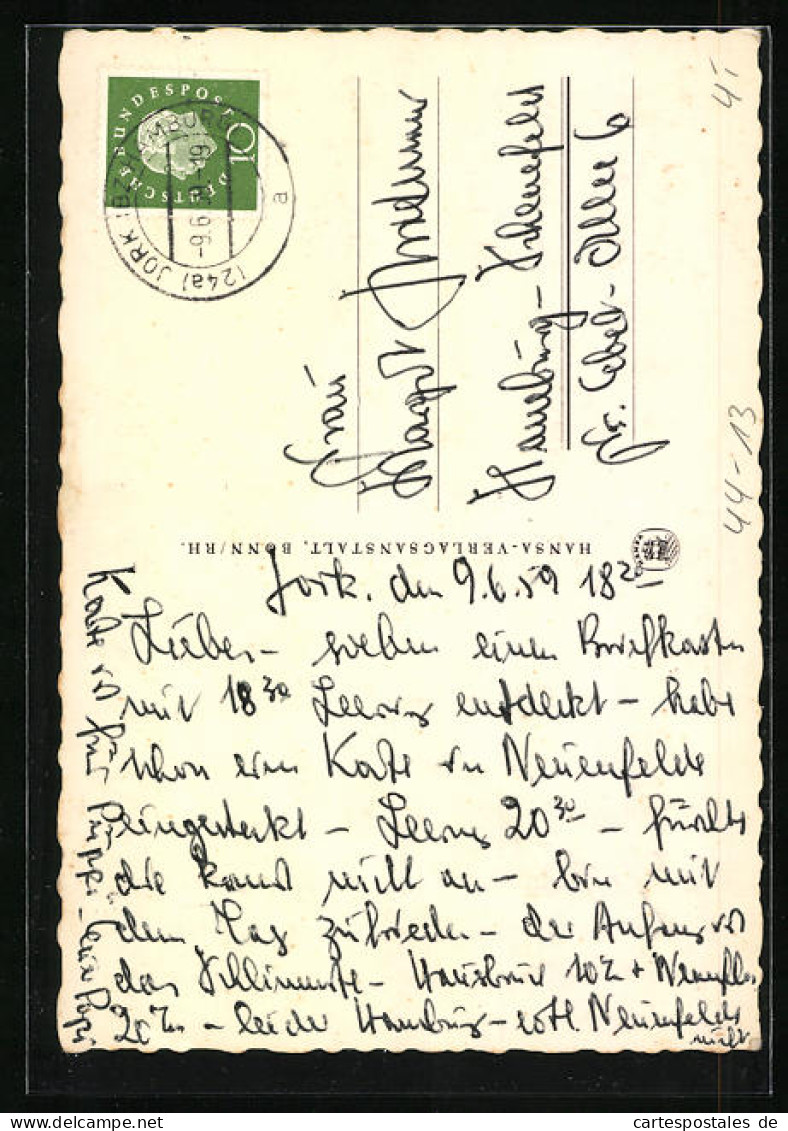 DEUTSCHE BUNDESPOST
10
(24a) JORK (BZ. HAMBURG)
-9.6.59-19
a
Frau
Margot
Hamburg - Schenefeld
Allee 6
41
44-13
HANSA-VERLAGSANSTALT, BONN/RH.
Jork, den 9.6.59 18 20
Liebes - soeben einen Briefkasten
mit 18 30 Leerung entdeckt - habe
schon eine Karte in Neuenfelde
eingesteckt - Leerung 20 30 - fürchte
die kommt nicht an - bin mit
dem Tag zufrieden - der Anfang ist
das Schlimmste - Hausbruch 10 + Neuenfelde
20 - leider Hamburg - Neuenfelde
nicht
Karte ist für Püppi - Papi
cartespostales.de
delcampe.net